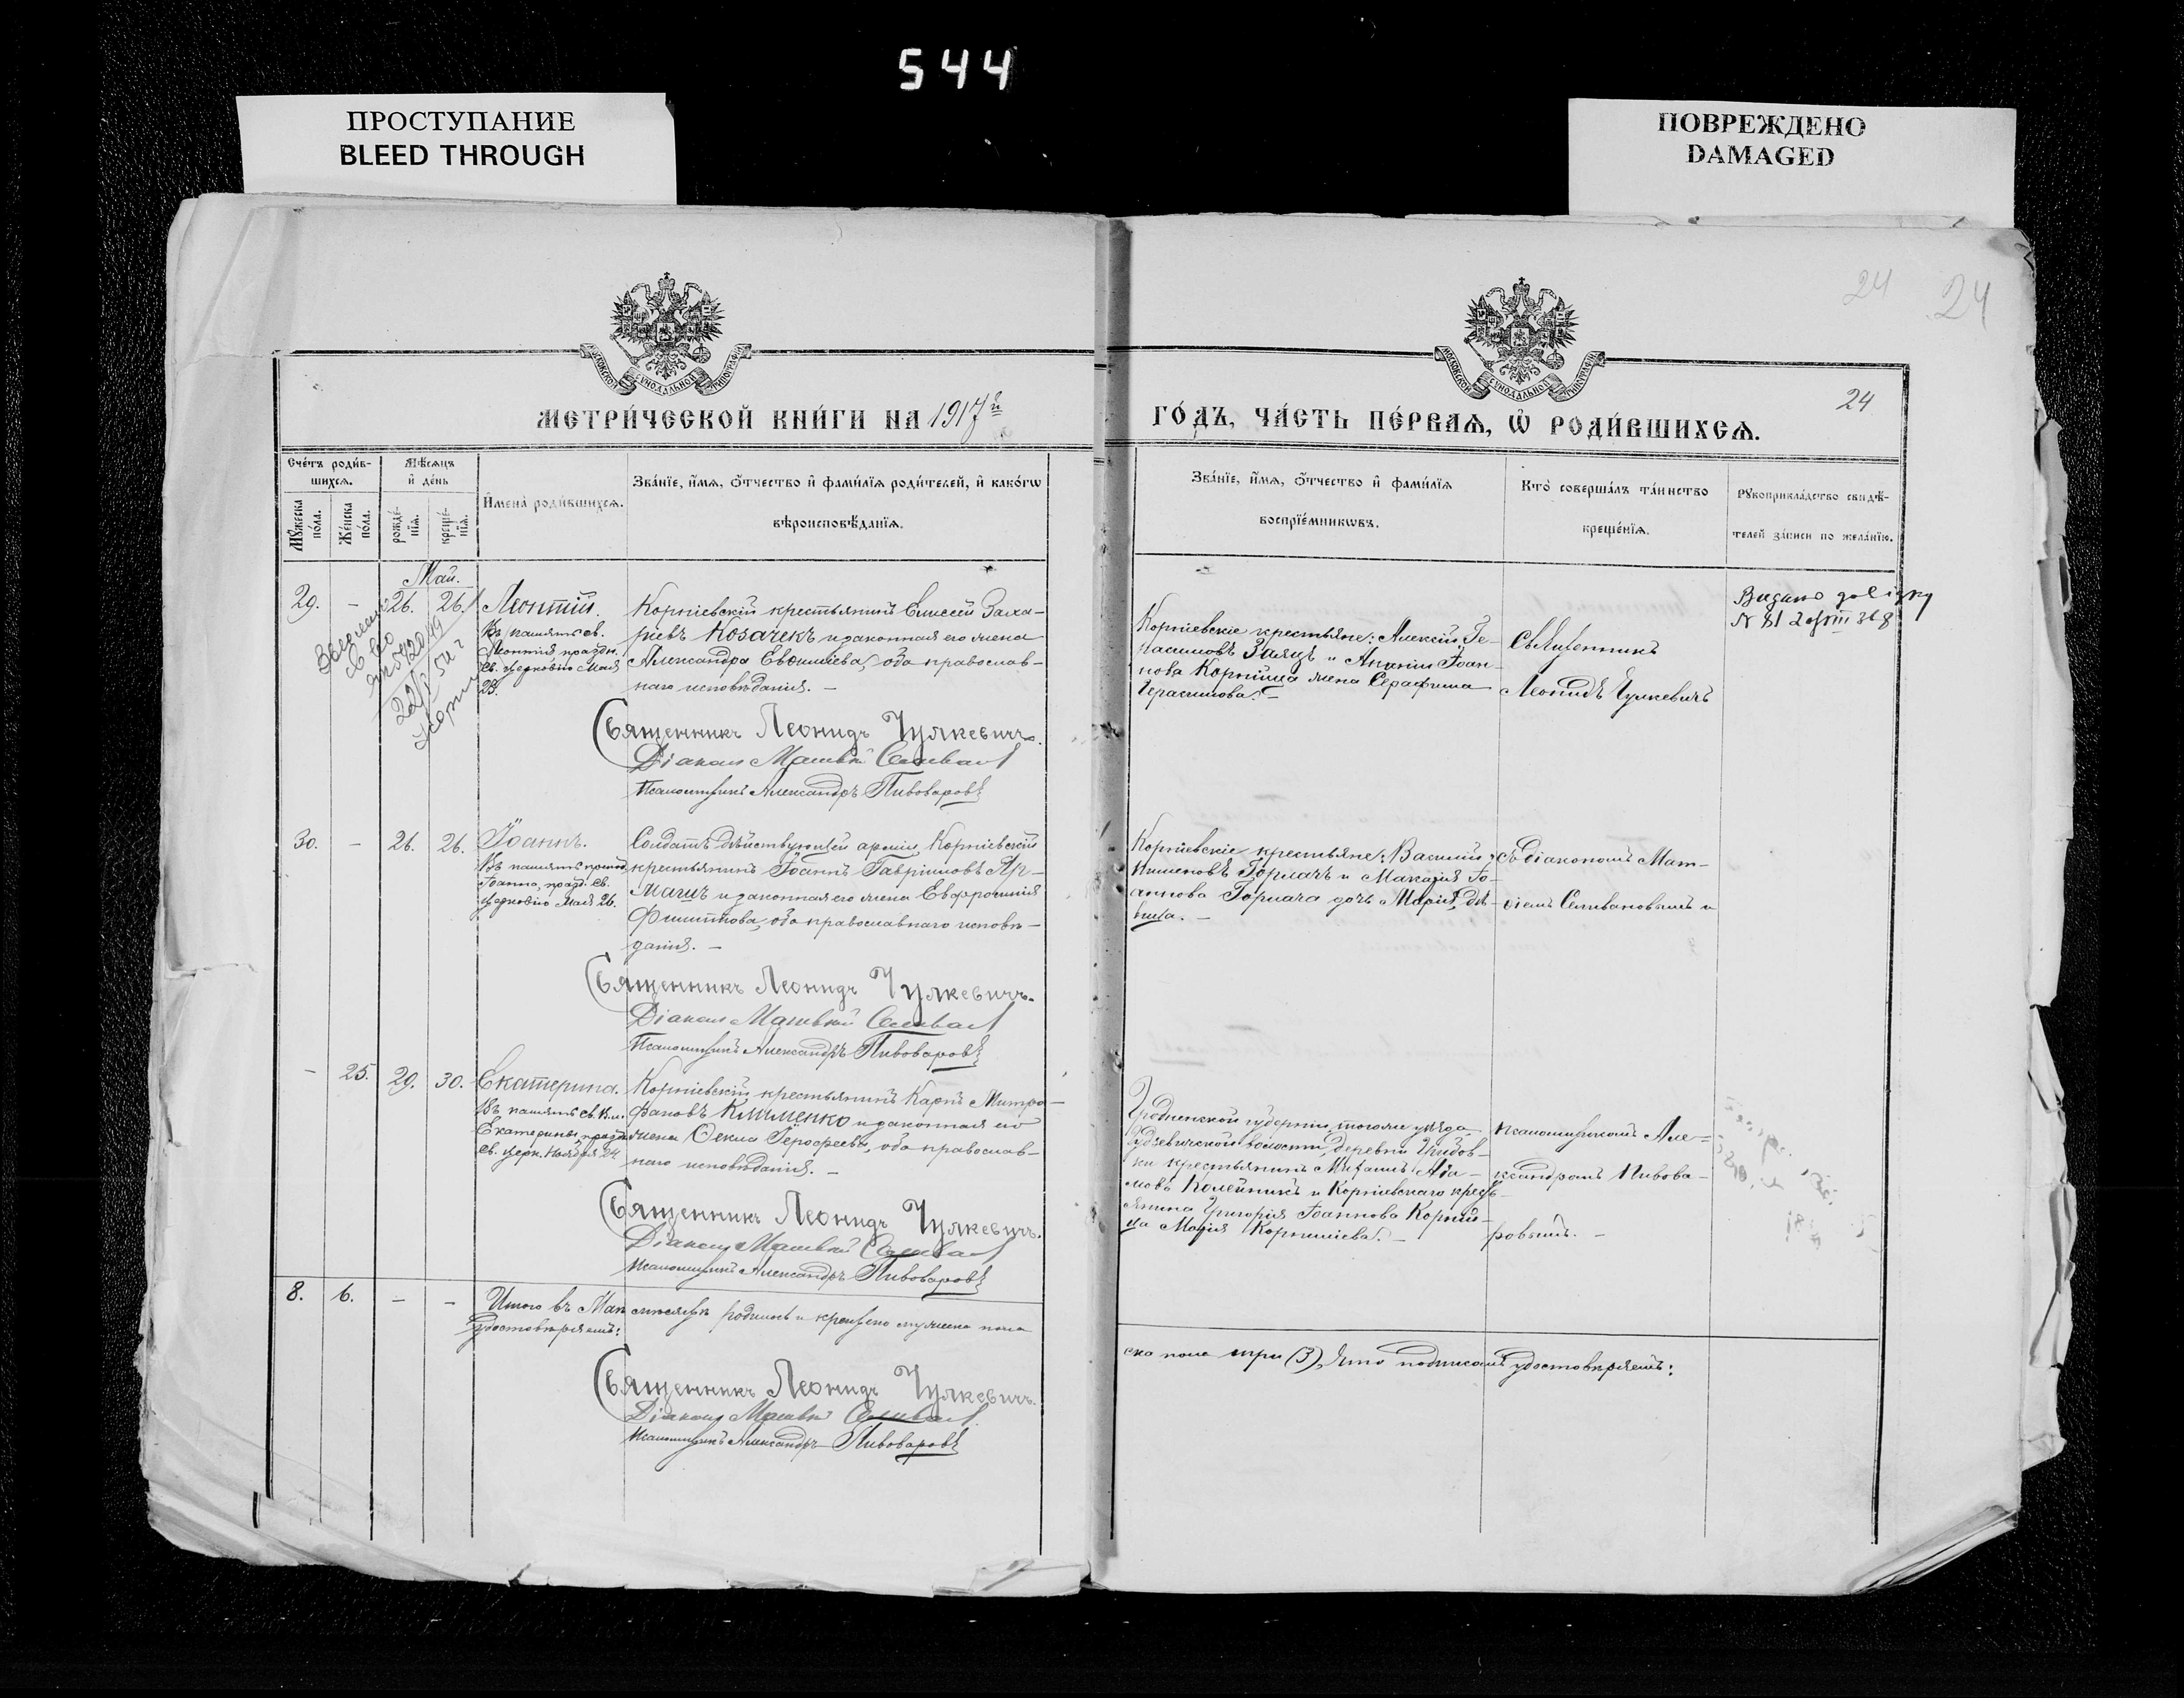 544
ПРОСТУПАНИЕ
BLEED THROUGH
ПОВРЕЖДЕНО
DAMAGED
24 24
МОСКОВСКОЙ СУНОДАЛЬНОЙ ТИПОГРАФІИ
МОСКОВСКОЙ СУНОДАЛЬНОЙ ТИПОГРАФІИ
МЕТРИ́ЧЕСКОЙ КНИ́ГИ НА 1917й
ГО́ДЪ, ЧА́СТЬ ПЕ́РВАѦ, Ѡ҆ РОДИ́ВШИХСѦ.
24
Сче́тъ роди́в-
шихсѧ.
Мѹ́жеска по́ла.
Же́нска по́ла.
Мѣ́сѧцъ
и҆ де́нь
рожде́-
нїѧ.
креще́-
нїѧ.
И҆мена̀ роди́вшихсѧ.
Зва́нїе, и҆́мѧ, ѻ҆́тчество и҆ фами́лїѧ роди́телей, и҆ како́гѡ
вѣроисповѣ́данїѧ.
Зва́нїе, и҆́мѧ, ѻ҆́тчество и҆ фами́лїѧ
воспрїе́мникѡвъ.
Кто̀ соверша́лъ та́инство
креще́нїѧ.
Рѹкоприкла́дство свидѣ́-
телей за́писи по жела́нїю.
Май.
29. – 26. 26.
Леонтій.
Въ память св.
Леонтія праздн.
св. церковію Мая
23.
Корніевскій крестьянинъ Елисей Заха-
ріевъ Козачекъ и законная его жена
Александра Евѳиміева, оба православ-
наго исповѣданія. –
Священникъ Леонидъ Чулкевичъ.
Діаконъ Матвѣй
Псаломщикъ Александръ Пивоваровъ
Корніевскіе крестьяне: Алексій Ге-
расимовъ Заяцъ и Ананіи Іоан-
нова Корнійца жена Серафима
Герасимова. –
Священникъ
Леонидъ Чулкевичъ
Видано довідку
№ 81 2
30. – 26. 26.
Іоаннъ.
Іоанна, празд. св.
церковію Мая 26.
Солдатъ дѣйствующей арміи Корніевскій
крестьянинъ Іоаннъ Гавріиловъ Яр-
машъ и законная его жена Евфросинія
Филиппова, оба православнаго исповѣ-
данія. –
Священникъ Леонидъ Чулкевичъ.
Діаконъ Матвѣй
Псаломщикъ Александръ Пивоваровъ
Корніевскіе крестьяне: Василій
Горлачъ и Макарія Іо-
аннова Горлача дочь Марія, дѣ-
вица. –
съ діакономъ Мат-
ѳіемъ Селивановымъ и
– 25. 29. 30.
Екатерина.
Въ память св. Вл.
Екатерины, праздн.
св. церк. Ноября 24.
Корніевскій крестьянинъ Карпъ Митро-
фановъ Клименко и законная его
жена Ѳекла Іероѳеева, оба православ-
наго исповѣданія. –
Священникъ Леонидъ Чулкевичъ.
Діаконъ Матвѣй
Псаломщикъ Александръ Пивоваровъ
Гродненской губерніи, того же уѣзда,
волости, деревни
крестьянинъ Михаилъ Ада-
мовъ Колейникъ и Корніевскаго кресть-
янина Григорія Іоаннова Корній-
ца Марія Корниліева. –
псаломщикомъ Але-
ксандромъ Пивова-
ровымъ. –
8. 6. – –
Итого въ Маѣ мѣсяцѣ родилось и крещено мужеска пола
удостовѣряемъ:
ска пола три (3), Что подписомъ удостовѣряемъ:
Священникъ Леонидъ Чулкевичъ.
Діаконъ Матвѣй
Псаломщикъ Александръ Пивоваровъ